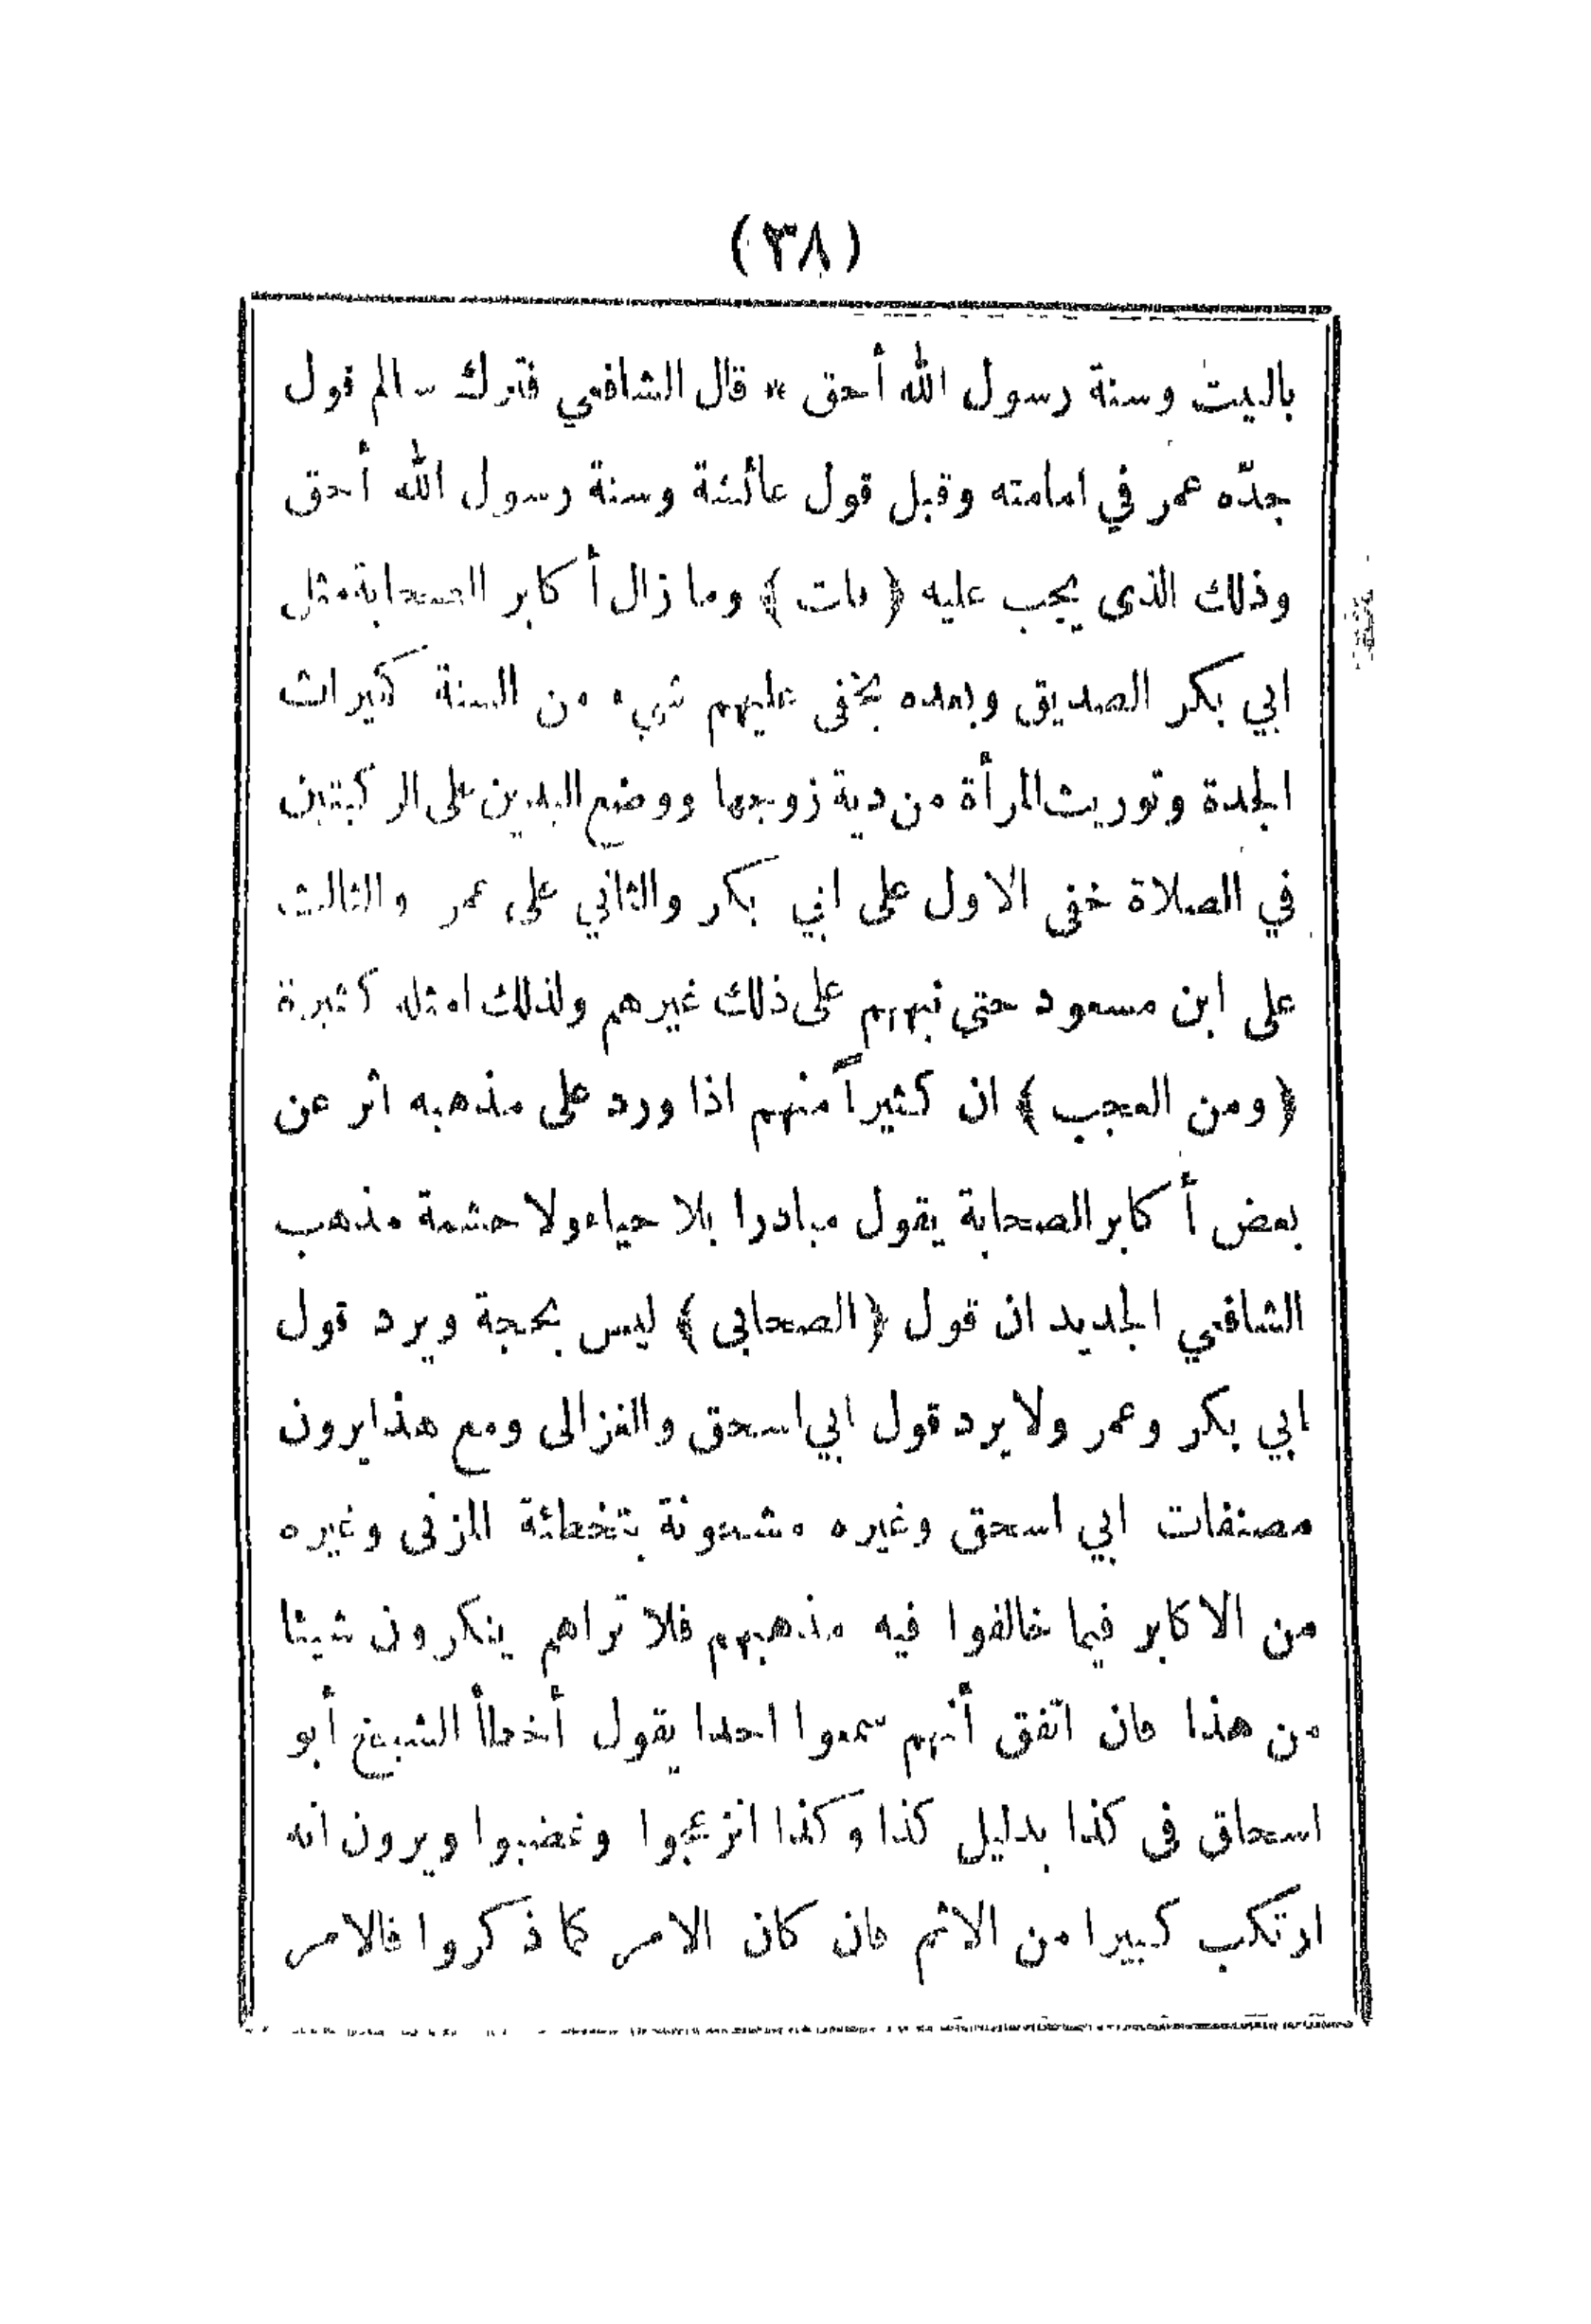 (٣٨)
بالبيت وسنة رسول الله أحق * قال الشافعي فترك سالم قول
جدّه عمر في امامته وقبل قول عائشة وسنة رسول الله أحق
وذلك الذى يجب عليه ﴿ قلت ﴾ وما زال أكابر الصحابة مثل
ابي بكر الصديق وبعده يخفى عليهم شيء من السنة كميراث
الجدة وتوريث المرأة من دية زوجها ووضع اليدين على الركبتين
في الصلاة خفى الاول على ابي بكر والثاني على عمر والثالث
على ابن مسعود حتى نبههم على ذلك غيرهم ولذلك امثله كثيرة
﴿ ومن العجب ﴾ ان كثيراً منهم اذا ورد على مذهبه اثر عن
بعض أكابر الصحابة يقول مبادرا بلا حياء ولا حشمة مذهب
الشافعي الجديد ان قول ﴿ الصحابى ﴾ ليس بحجة ويرد قول
ابي بكر وعمر ولا يرد قول ابي اسحق والغزالى ومع هذا يرون
مصنفات ابي اسحق وغيره مشحونة بتخطائة المزنى وغيره
من الاكابر فيما خالفوا فيه مذهبهم فلا تراهم ينكرون شيئا
من هذا فان اتفق أنهم سمعوا احدا يقول أخطأ الشيخ أبو
اسحاق فى كذا بدليل كذا وكذا انزعجوا وغضبوا ويرون انه
ارتكب كبيرا من الاثم فان كان الامر كما ذكروا فالامر